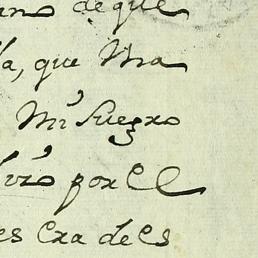 ano de que
la, que Vra
Mi Suegro
por el
es era de es